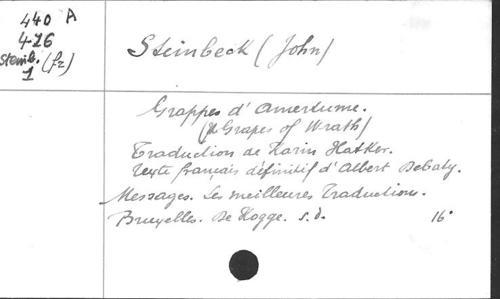 440 A
416
Steinb. (fr)
1
Steinbeck (John)
Grappes d'amertume.
(Grapes of Wrath)
Traduction de Karin Hatker.
Texte français définitif d'Albert Debaty.
Messages. Les meilleures Traductions.
Bruxelles. De Kogge. s.d. 16°